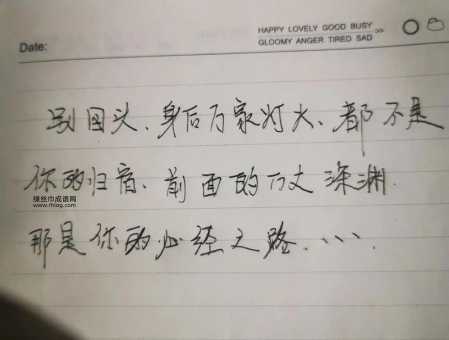 HAPPY LOVELY GOOD BUSY >>
Date: GLOOMY ANGER TIRED SAD
别回头、身后万家灯火、都不是
你的归宿、前面的万丈深渊.
绿丝巾成语网
www.rhlag.com
那是你的必经之路、……